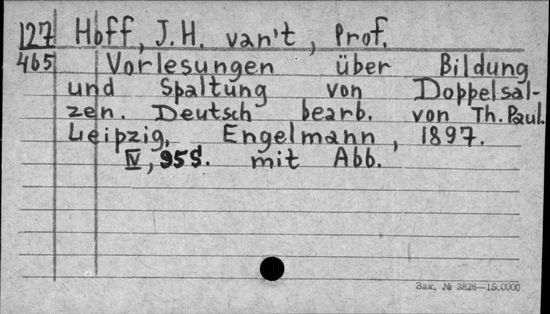 127 Hoff, J.H. van't, Prof.
465 Vorlesungen über Bildung
und Spaltung von Doppelsal-
zen. Deutsch bearb. von Th. Paul.
Leipzig, Engelmann, 1897.
IV, 95S. mit Abb.
Зак. № 3826—15.0000